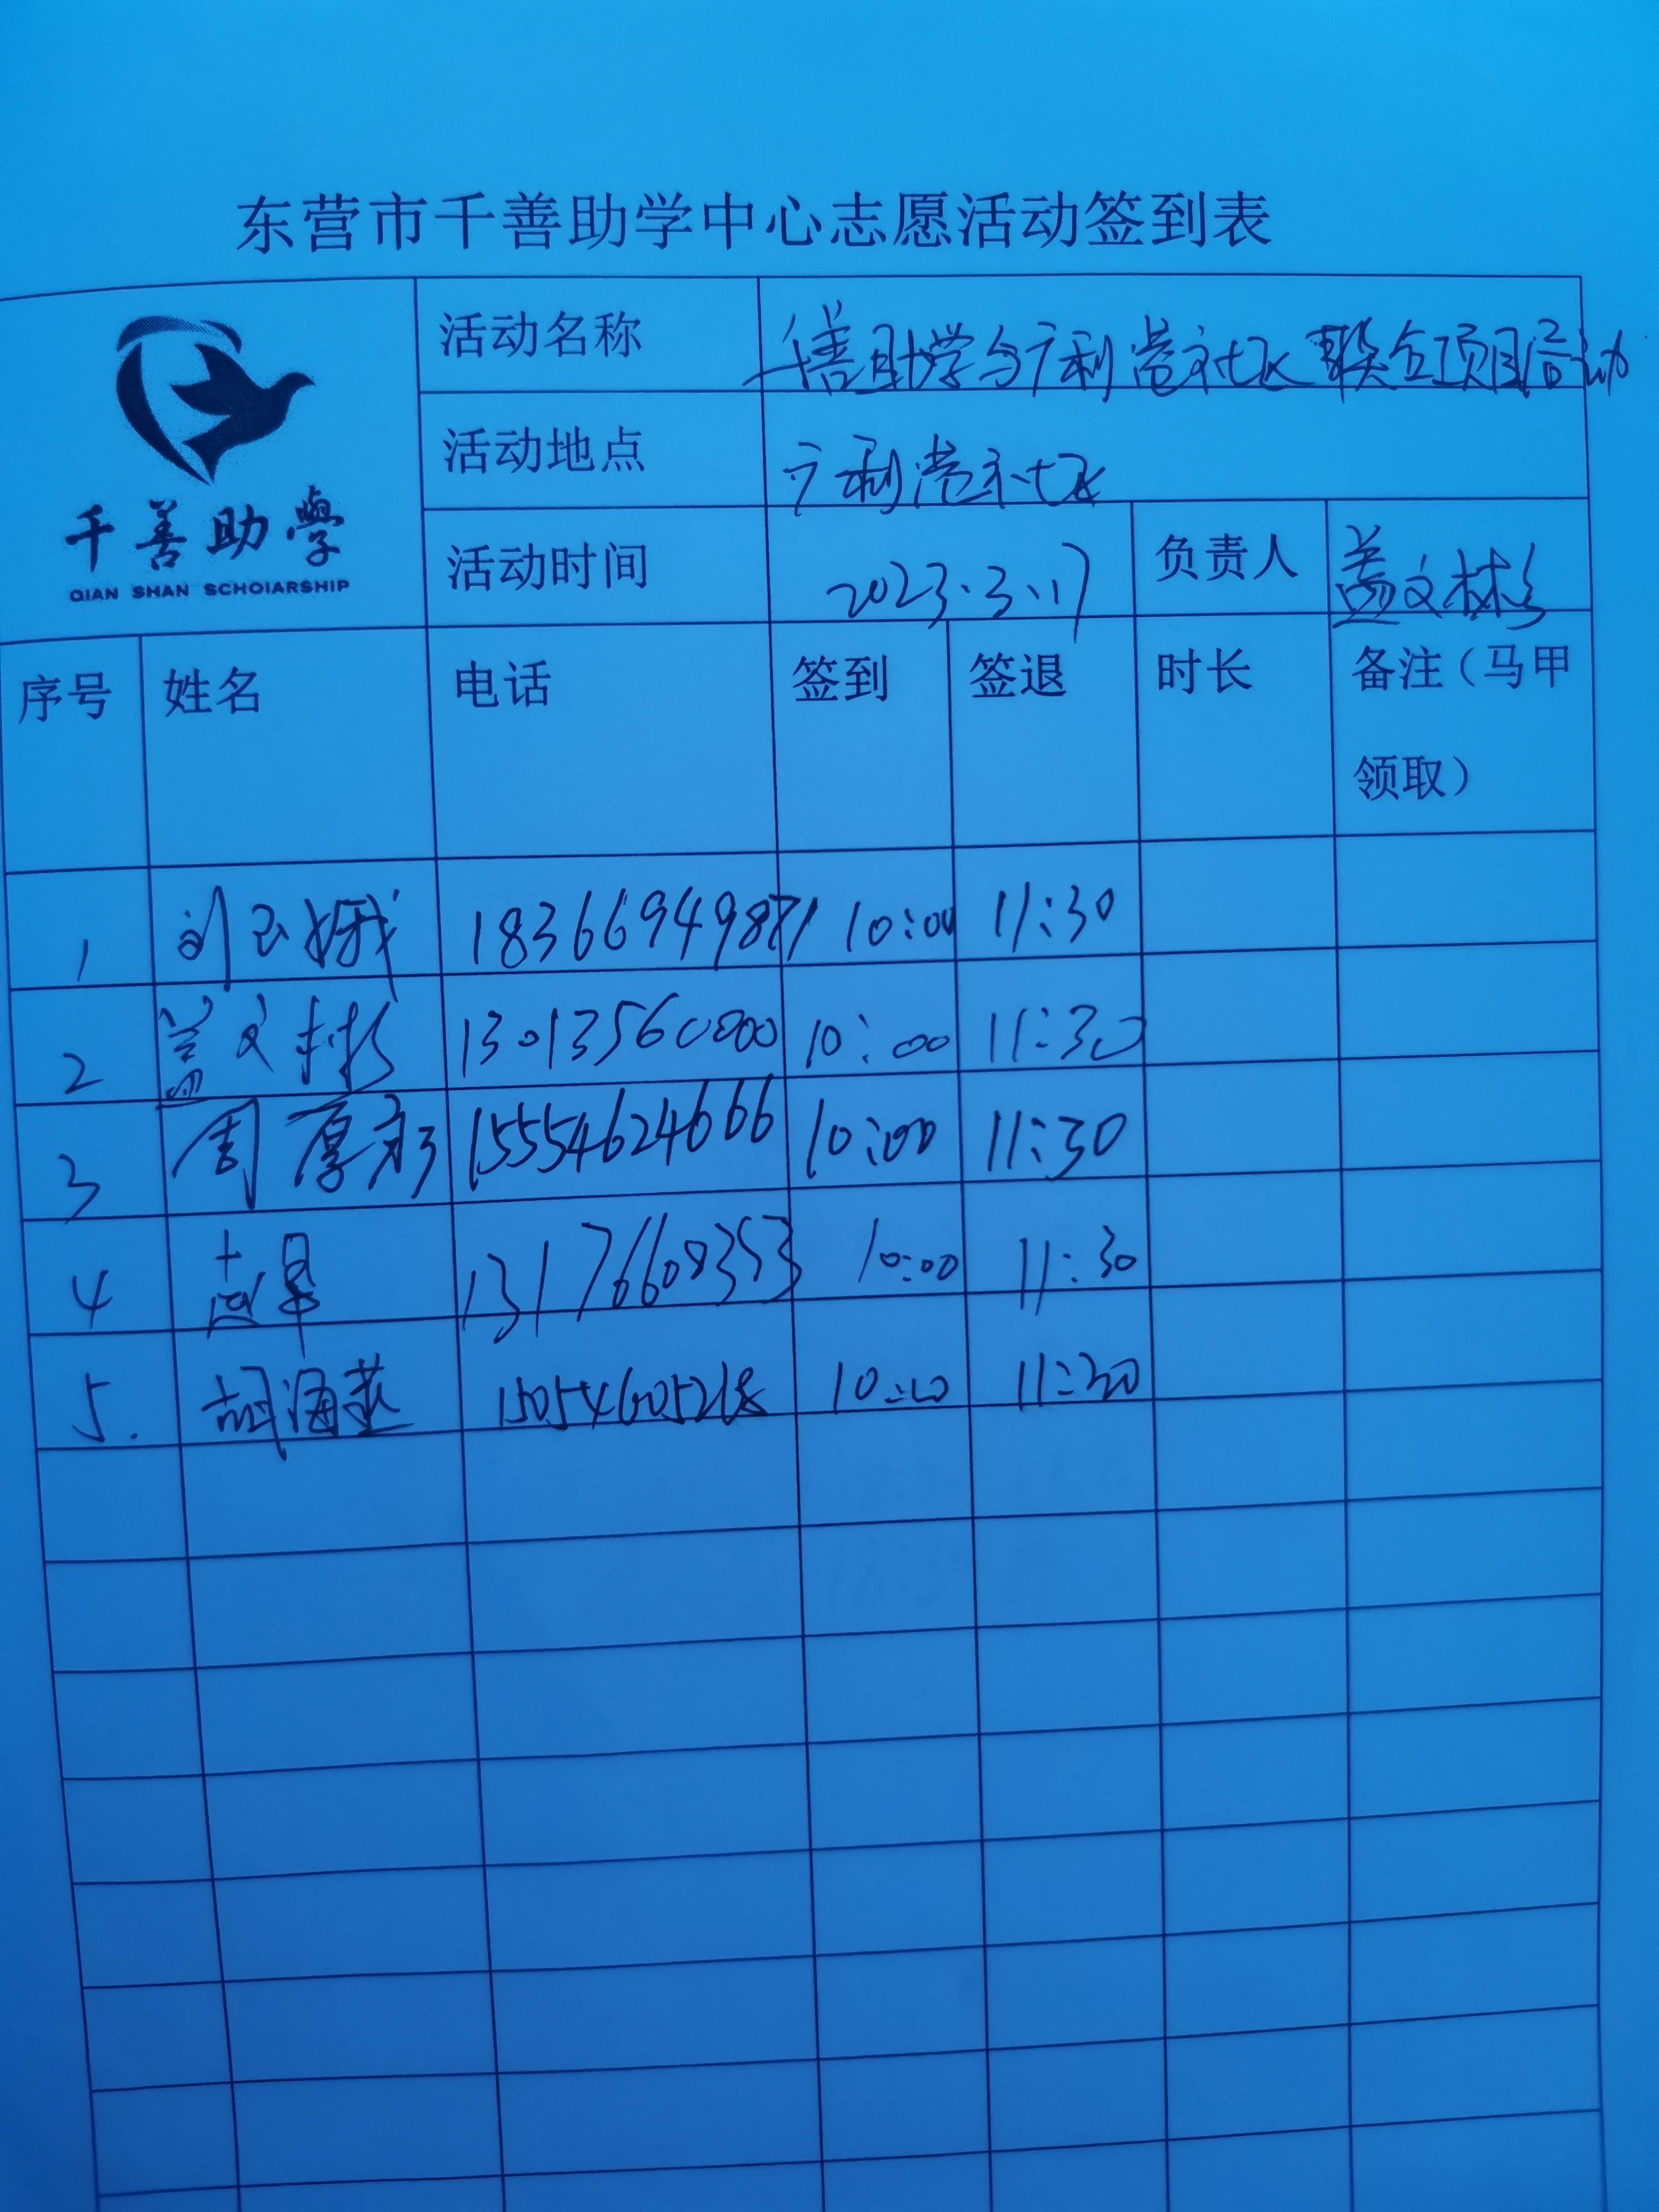 东营市千善助学中心志愿活动签到表
千善助學
QIAN SHAN SCHOIARSHIP
活动名称 千善助学与广利港社区联合项目启动
活动地点 广利港社区
活动时间 2023.3.17 负责人 盖文彬
序号 姓名 电话 签到 签退 时长 备注（马甲
领取）
1 刘玉娥 10:00 11:30
2 盖文彬 13013560000 10:00 11:30
3 周厚彦 15554624666 10:00 11:30
4 13176608353 10:00 11:30
5. 胡海燕 11:30